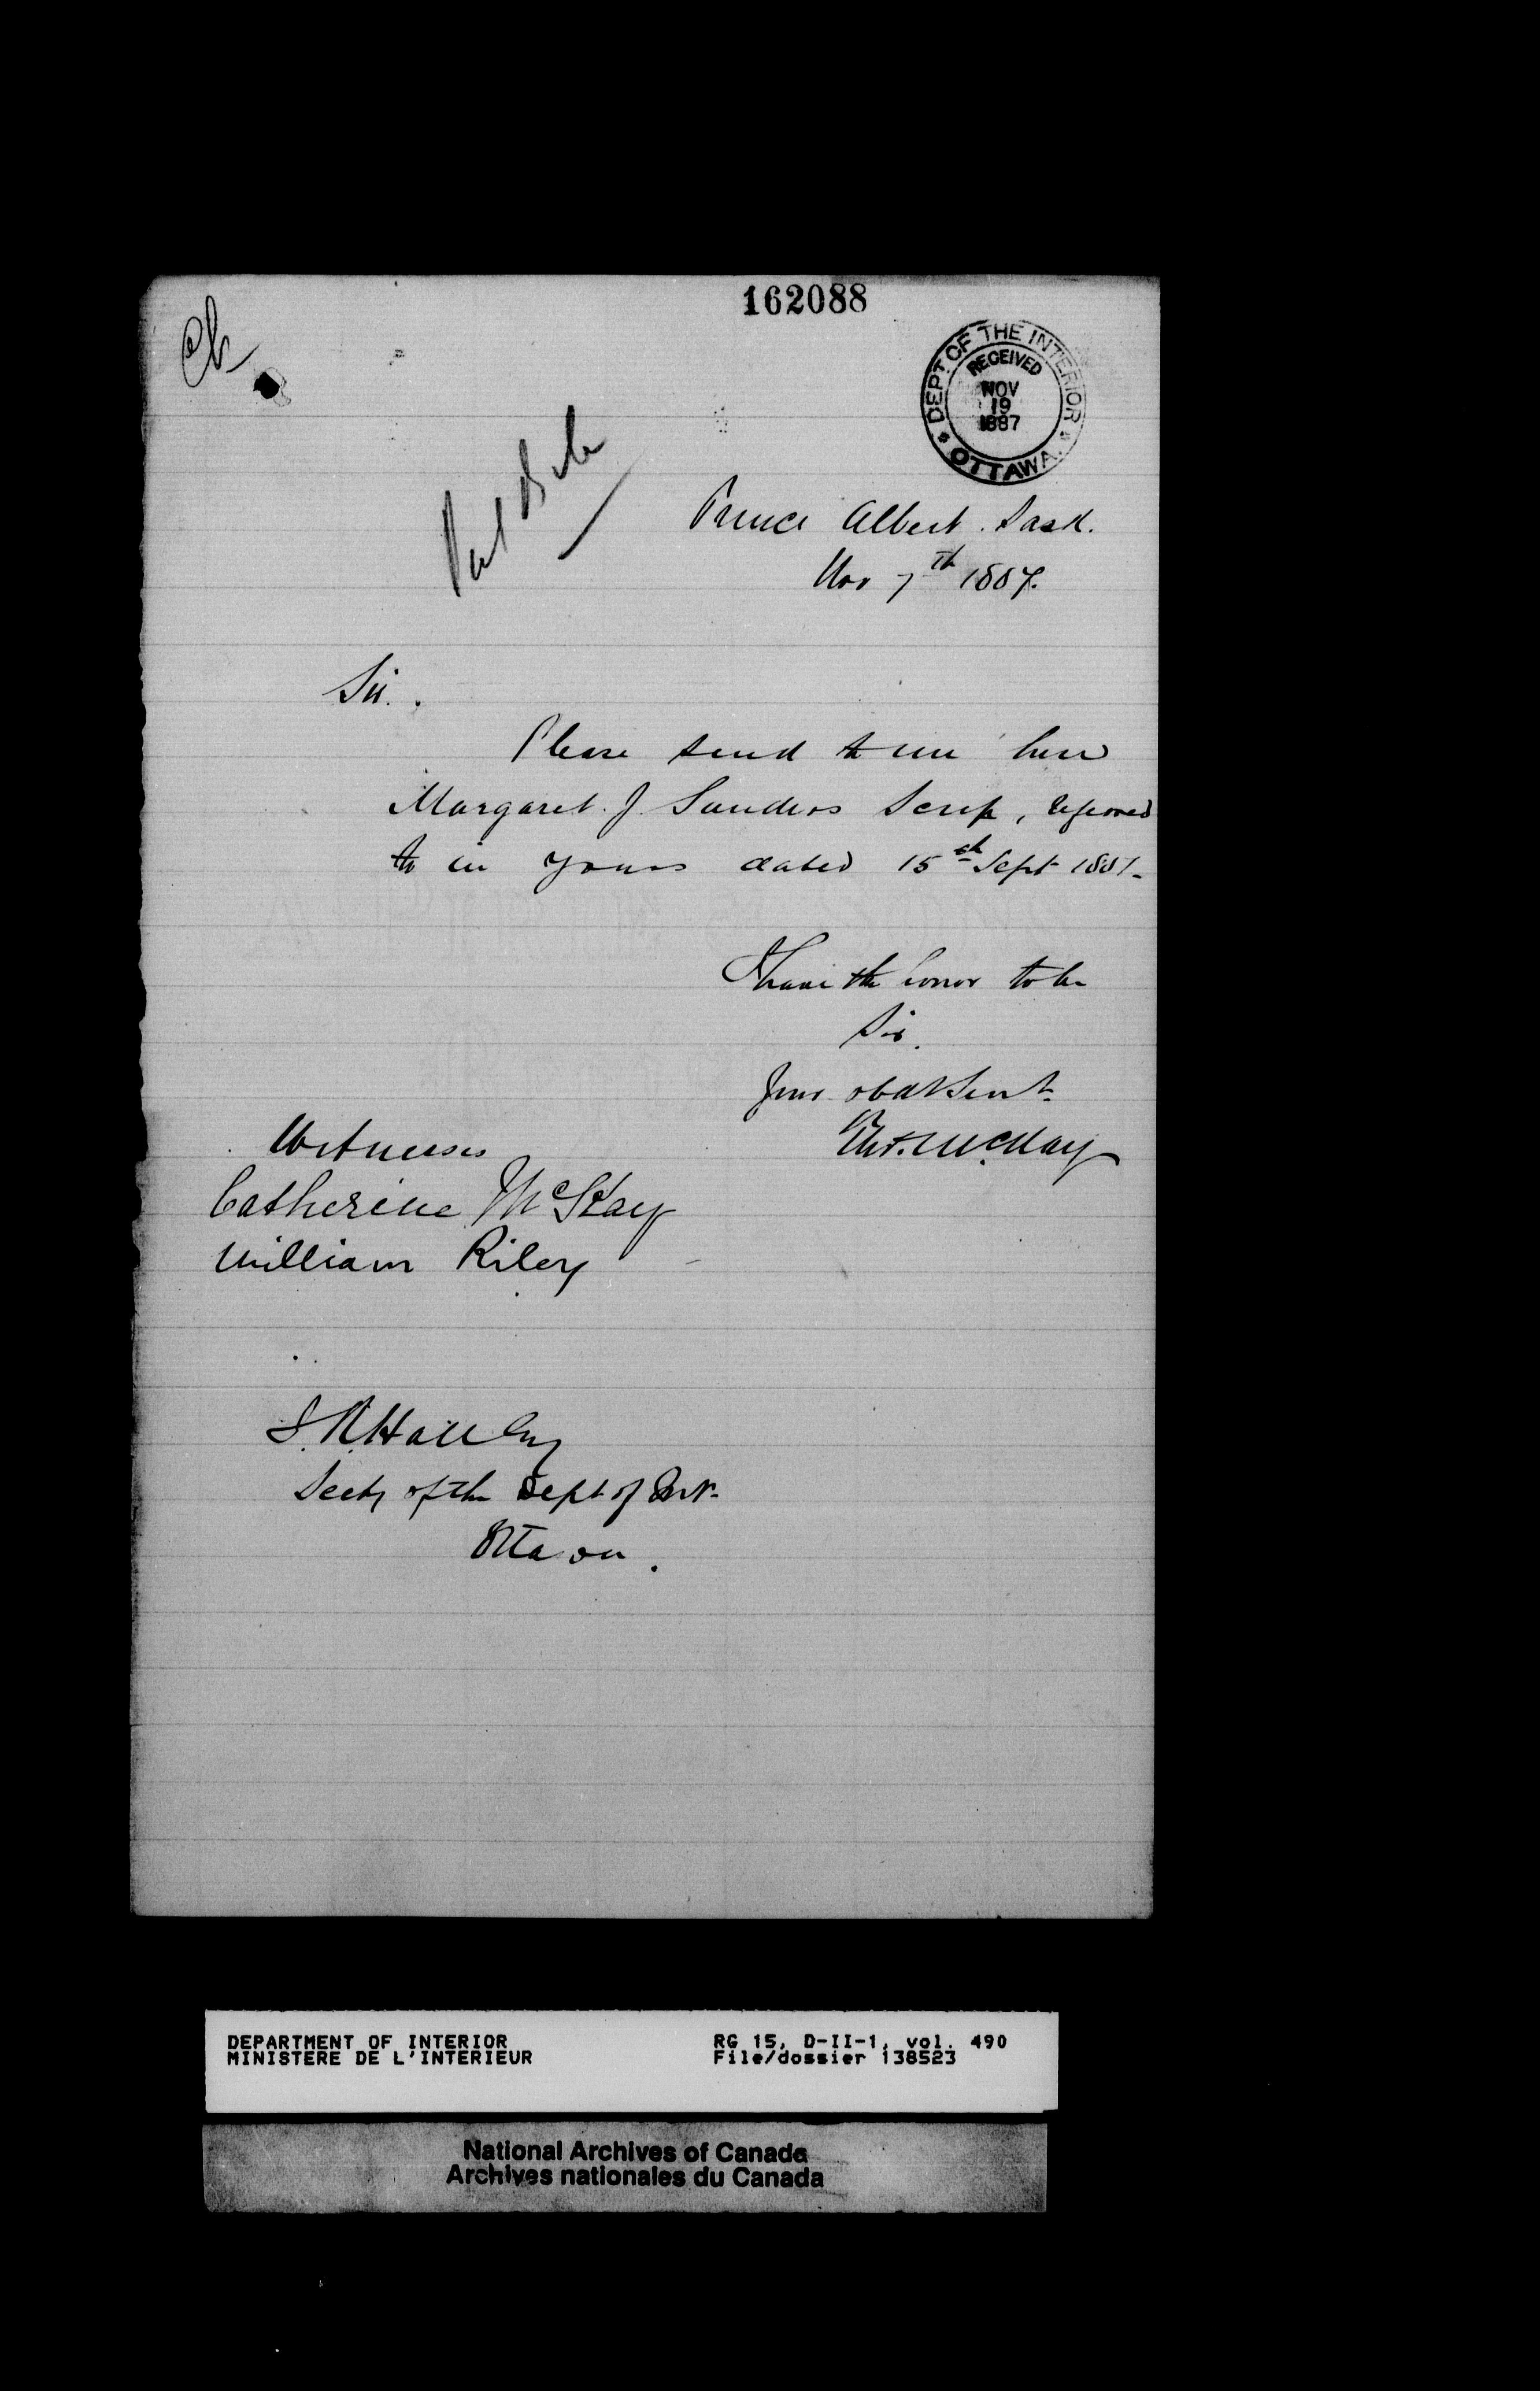 162088
DEPT. OF THE INTERIOR
RECEIVED
NOV
19
1887
OTTAWA.
Prince Albert. Sask.
Nov 7th 1887.
Sir.
Please send to me here
Margaret. J. Sanders Scrip, referred
to in yours dated 15th Sept 1887.
I have the honor to be
Sir.
Your obdt Servt.
Thos. McKay
Witnesses
Catherine McKay
William Riley
Hall Esq
Secty of the Dept of Int.
Ottawa.
DEPARTMENT OF INTERIOR
MINISTERE DE L'INTERIEUR
RG 15, D-II-1, vol. 490
File/dossier 138523
National Archives of Canada
Archives nationales du Canada